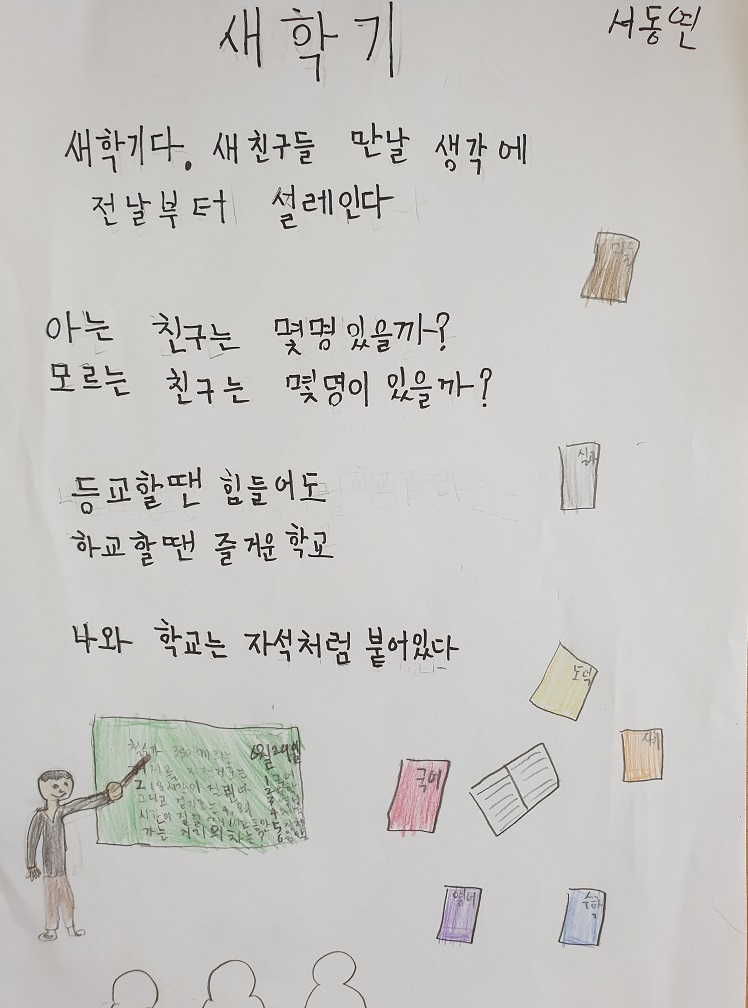 새학기
서동연
새학기다. 새친구들 만날 생각에
전날부터 설레인다
아는 친구는 몇명있을까?
모르는 친구는 몇명이 있을까?
등교할땐 힘들어도
하교할땐 즐거운학교
나와 학교는 자석처럼 붙어있다
실과
도덕
사회
국어
영어
수학
6월
1 국어
2
3
4
5
가는 거리의 차는?